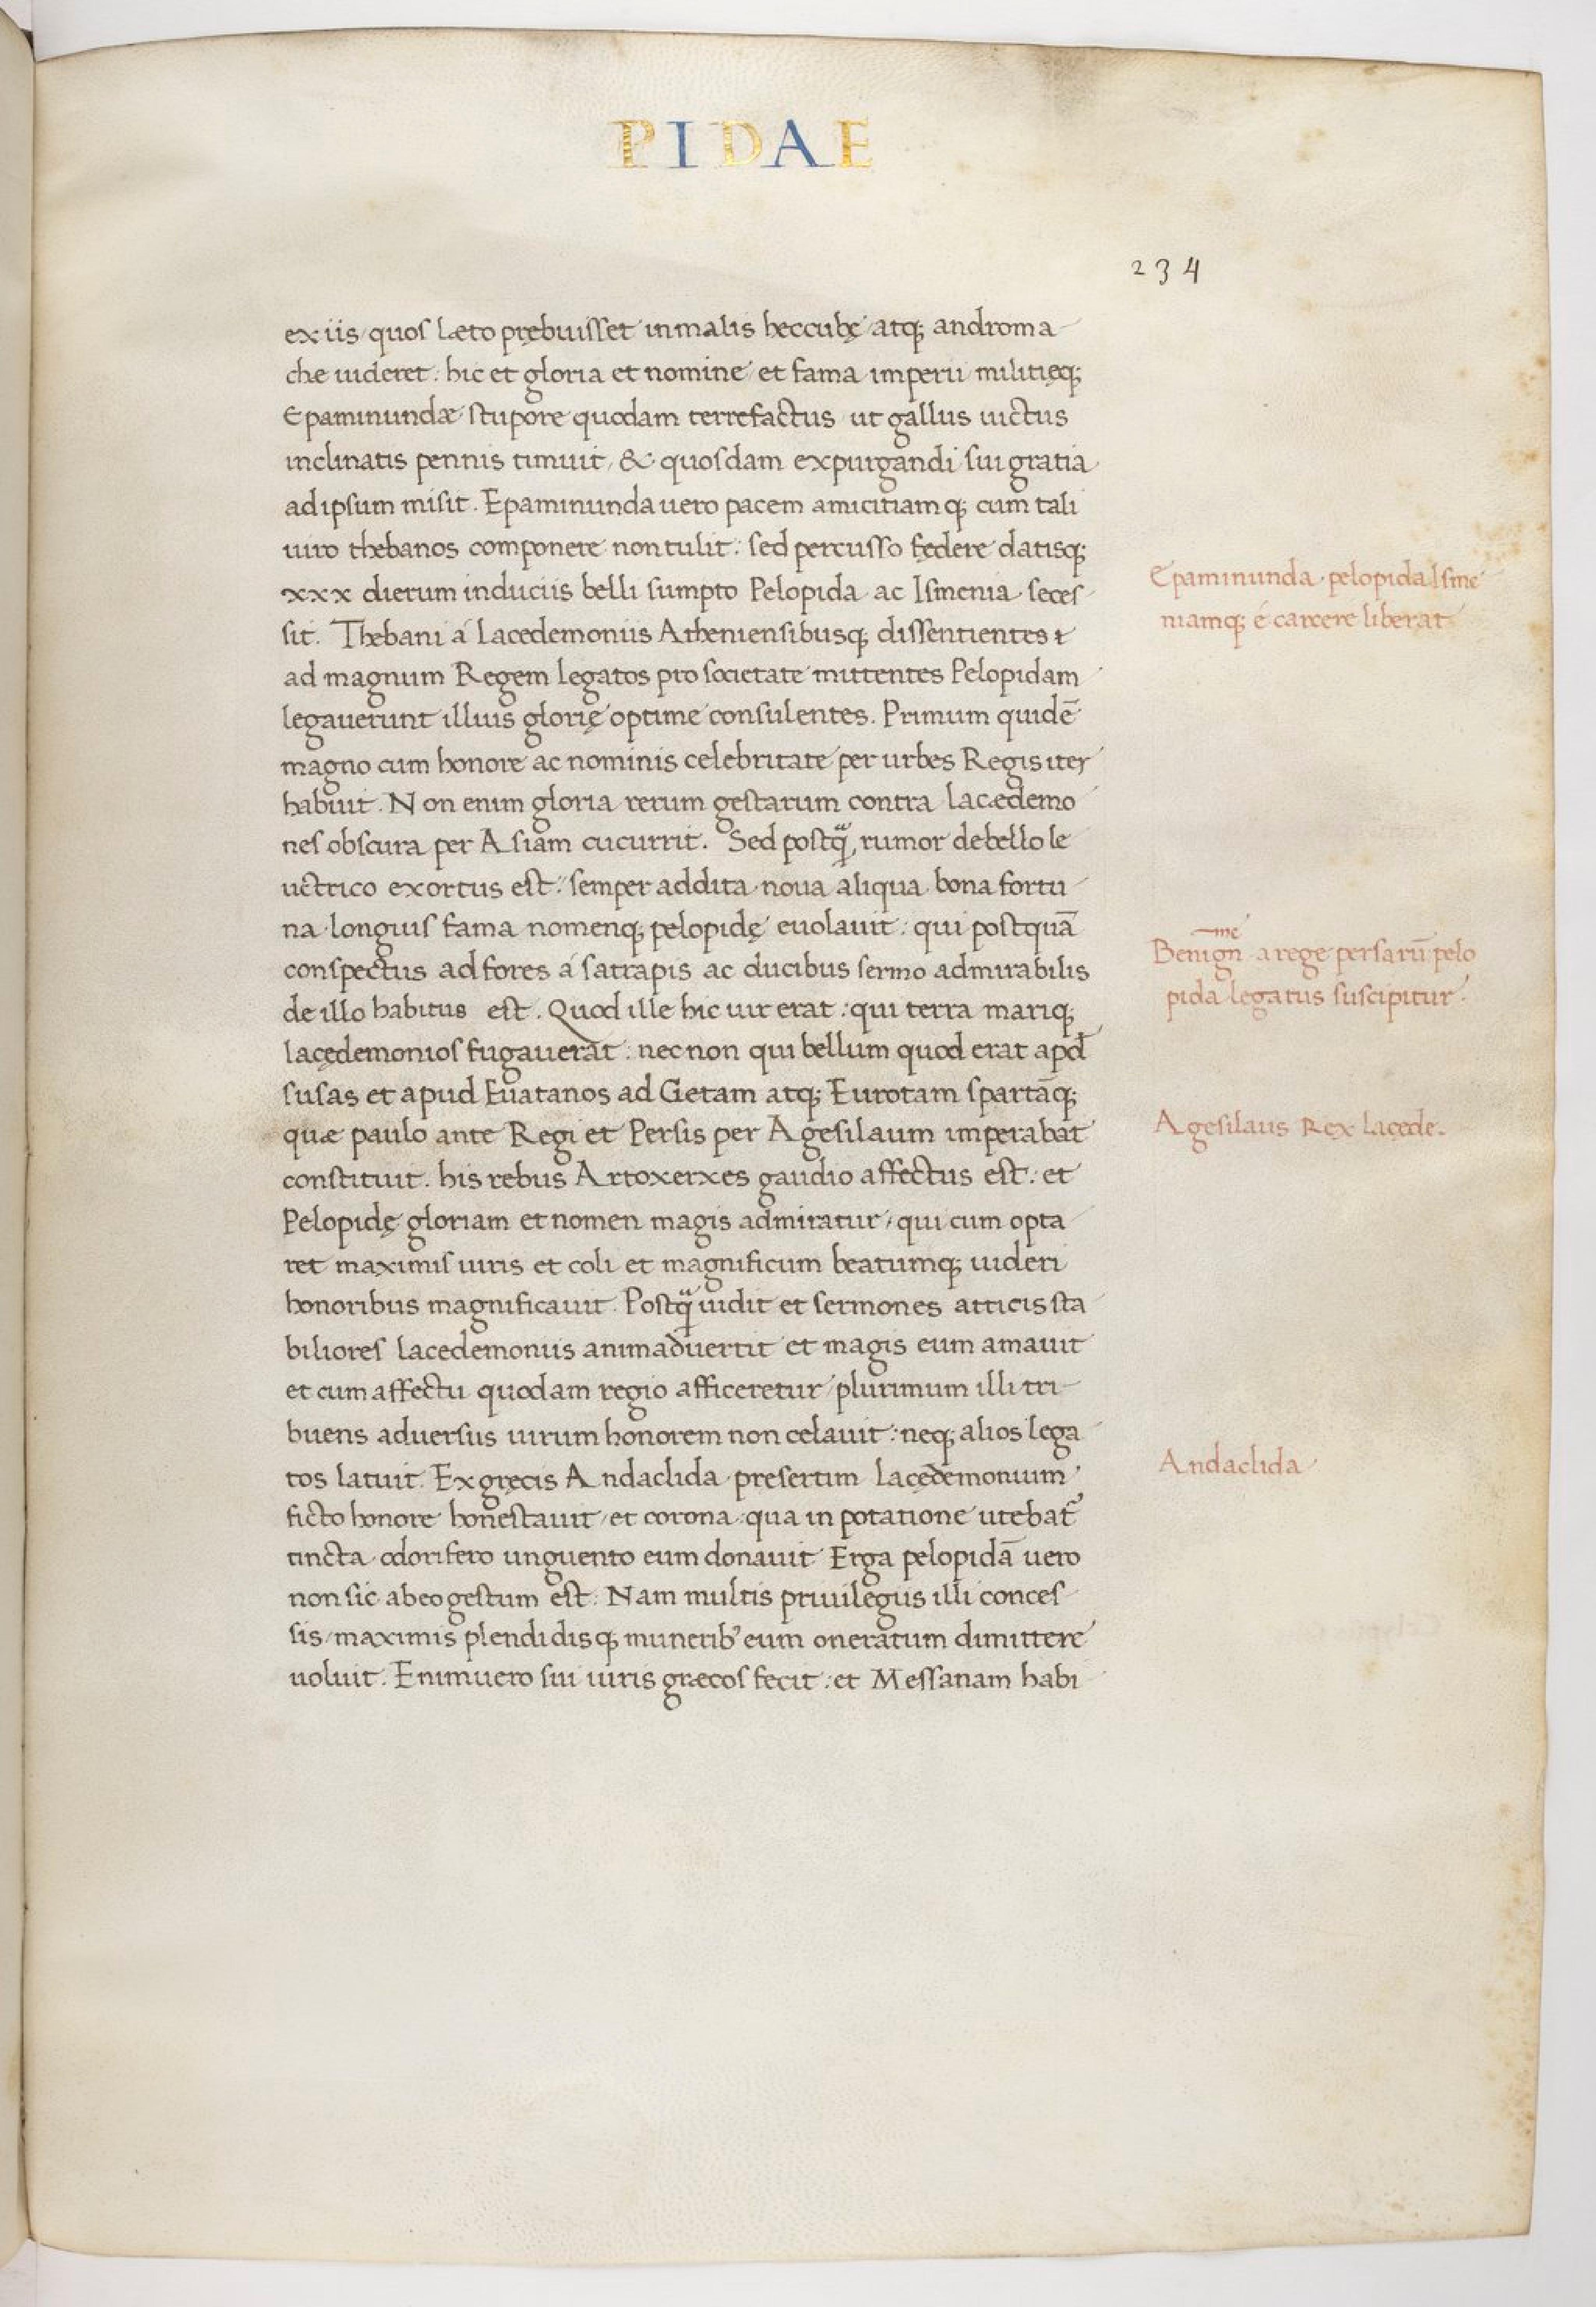 PIDAE
234
ex iis quos læto prębuisset in malis heccubę atq; androma
che uideret: hic et gloria et nomine et fama imperii militięq;
Epaminundæ stupore quodam terrefactus ut gallus uictus
inclinatis pennis timuit, & quosdam expurgandi sui gratia
ad ipsum misit. Epaminunda uero pacem amicitiamq; cum tali
uiro thebanos componere non tulit: sed percusso fędere datisq;
xxx dierum induciis belli sumpto Pelopida ac Ismenia seces
sit. Thebani á Lacedemoniis Atheniensibusq; dissentientes &
ad magnum Regem legatos pro societate mittentes Pelopidam
legauerunt illius glorię optime consulentes. Primum quidē
magno cum honore ac nominis celebritate per urbes Regis iter
habuit. Non enim gloria rerum gestarum contra lacædemo
nes obscura per Asiam cucurrit. Sed postq̃ rumor de bello le
uctrico exortus est: semper addita noua aliqua bona fortu
na longius fama nomenq; pelopidę euolauit: qui postquā
conspectus ad fores á satrapis ac ducibus sermo admirabilis
de illo habitus est. Quod ille hic uir erat: qui terra mariq;
lacędemonios fugauerat: necnon qui bellum quod erat apđ
susas et apud Euatanos ad Getam atq; Eurotam spartāq;
quæ paulo ante Regi et Persis per Agesilaum imperabat
constituit. his rebus Artoxerxes gaudio affectus est: et
Pelopidę gloriam et nomen magis admiratur, qui cum opta
ret maximis uiris et coli et magnificum beatumq; uideri
honoribus magnificauit. Postq̃ uidit et sermones atticis sta
biliores lacedemoniis animaduertit et magis eum amauit
et cum affectu quodam regio afficeretur plurimum illi tri
buens aduersus uirum honorem non celauit: neq; alios lega
tos latuit. Ex gręcis Andaclida presertim lacędemonium
ficto honore honestauit, et corona: qua in potatione utebat̃
tincta odorifero unguento eum donauit Erga pelopidā uero
non sic ab eo gestum est: Nam multis priuilegiis illi conces
sis, maximis plendidisq; munerib' eum oneratum dimittere
uoluit. Enimuero sui iuris græcos fecit: et Messanam habi
Epaminunda pelopida Isme
niamq; é carcere liberat
me
Benign a rege persarū pelo
pida legatus suscipitur.
Agesilaus Rex lacede.
Andaclida